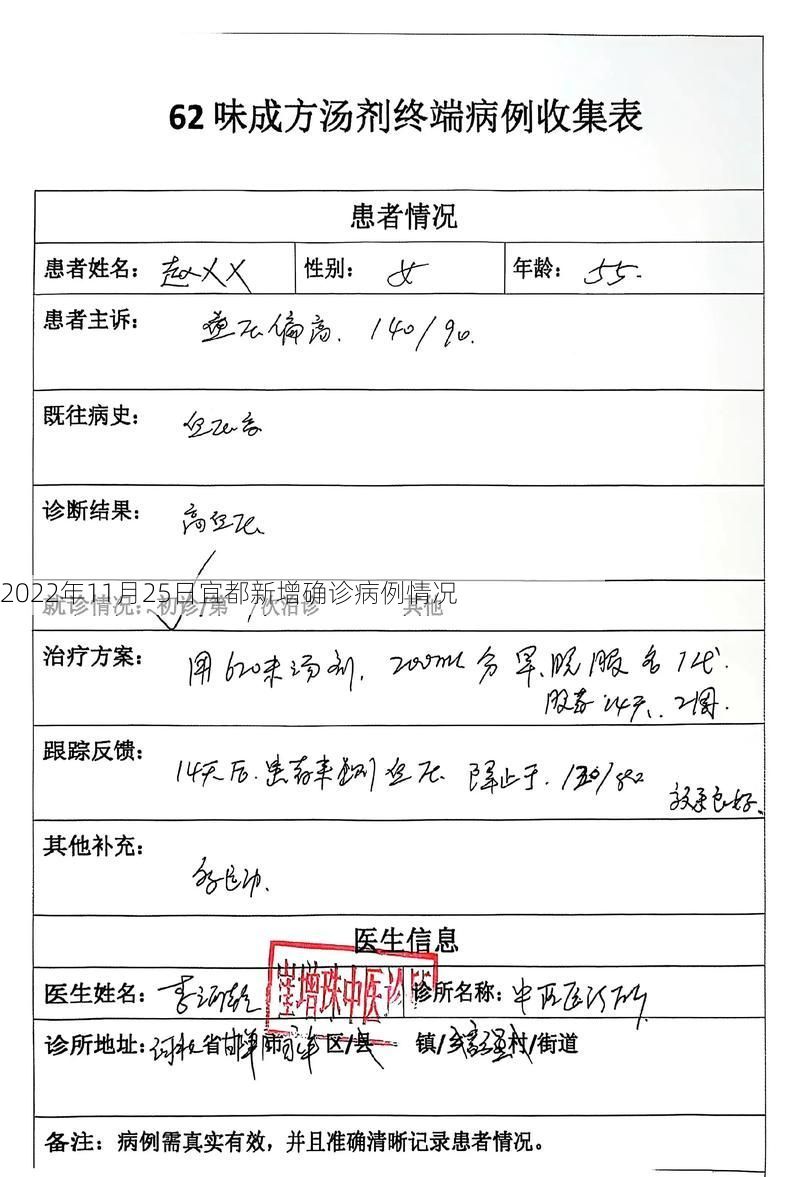 62味成方汤剂终端病例收集表
患者情况
患者姓名: 赵XX 性别: 女 年龄: 55.
患者主诉: 血压偏高. 140/90.
既往病史: 血压高
诊断结果: 高血压
2022年11月25日宜都新增确诊病例情况
就诊情况: 初诊/第 次治诊 其他
治疗方案: 用620味汤剂, 200ml 分早、晚服各1代.
服药14天、2周.
跟踪反馈: 14天后.患者来测血压 降止于. 130/
效果良好、
其他补充: 多运动.
医生信息
医生姓名: 李 诊所名称: 中医诊所
崔增珠中医诊所
诊所地址: 河北省邯郸市 区/县 镇/乡 村/街道
备注: 病例需真实有效，并且准确清晰记录患者情况。